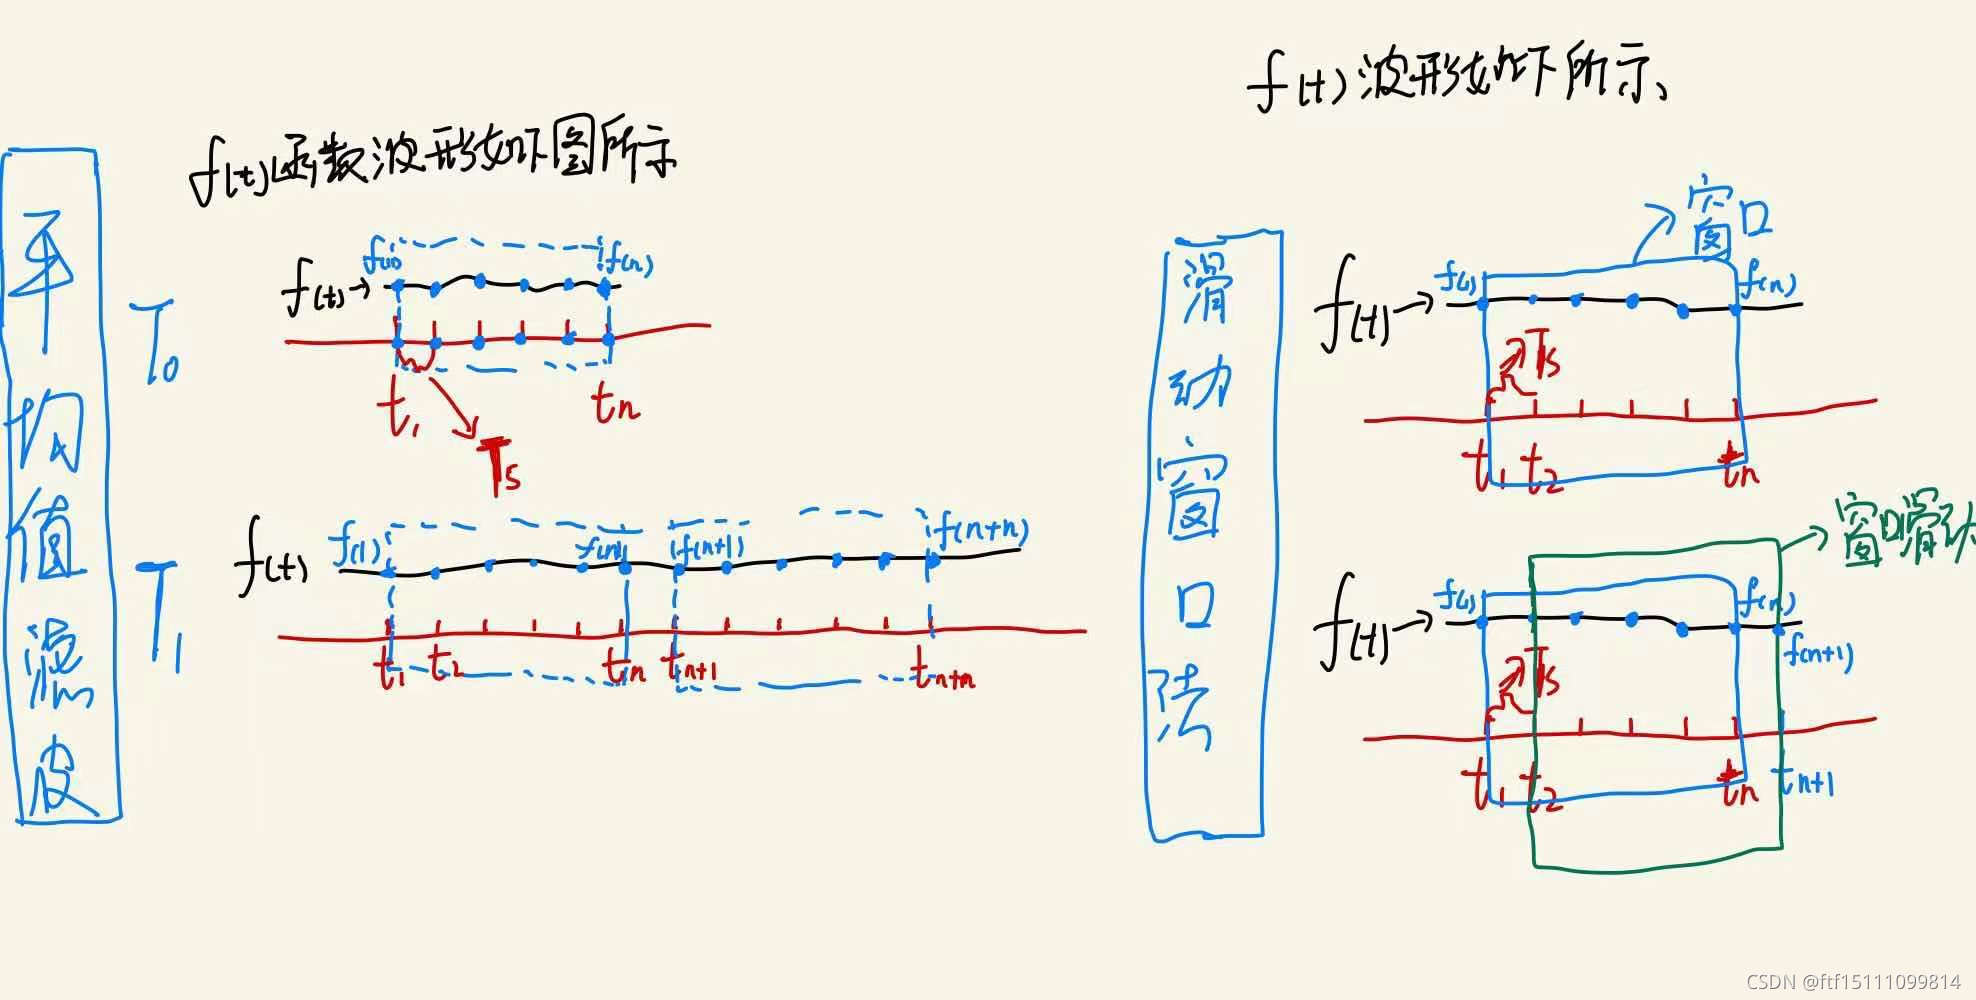 f(t)函数波形如下图所示
平均值滤波
T0
f(t)→
f(1)
f(n)
t1
tn
Ts
T1
f(t)
f(1)
f(n)
f(n+1)
f(n+n)
t1
t2
tn
tn+1
tn+n
f(t)波形如下所示、
滑动窗口法
窗口
f(t)→
f(1)
f(n)
Ts
t1
t2
tn
窗口滑动
f(t)→
f(1)
f(n)
f(n+1)
Ts
t1
t2
tn
tn+1
CSDN @ftf15111099814